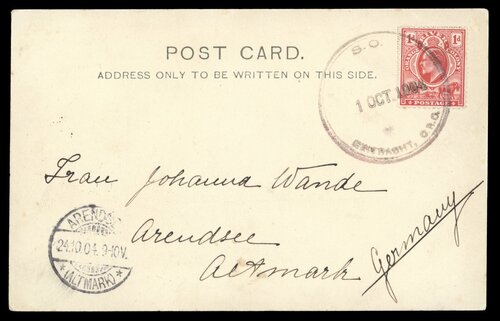 POST CARD.
ADDRESS ONLY TO BE WRITTEN ON THIS SIDE.
S.O.
1 OCT.1904
O.R.C.
1d 1d
POSTAGE
Frau Johanna Wande
Arendsee
Altmark
Germany
ARENDSEE
24.10.04.9-10V.
* (ALTMARK) *